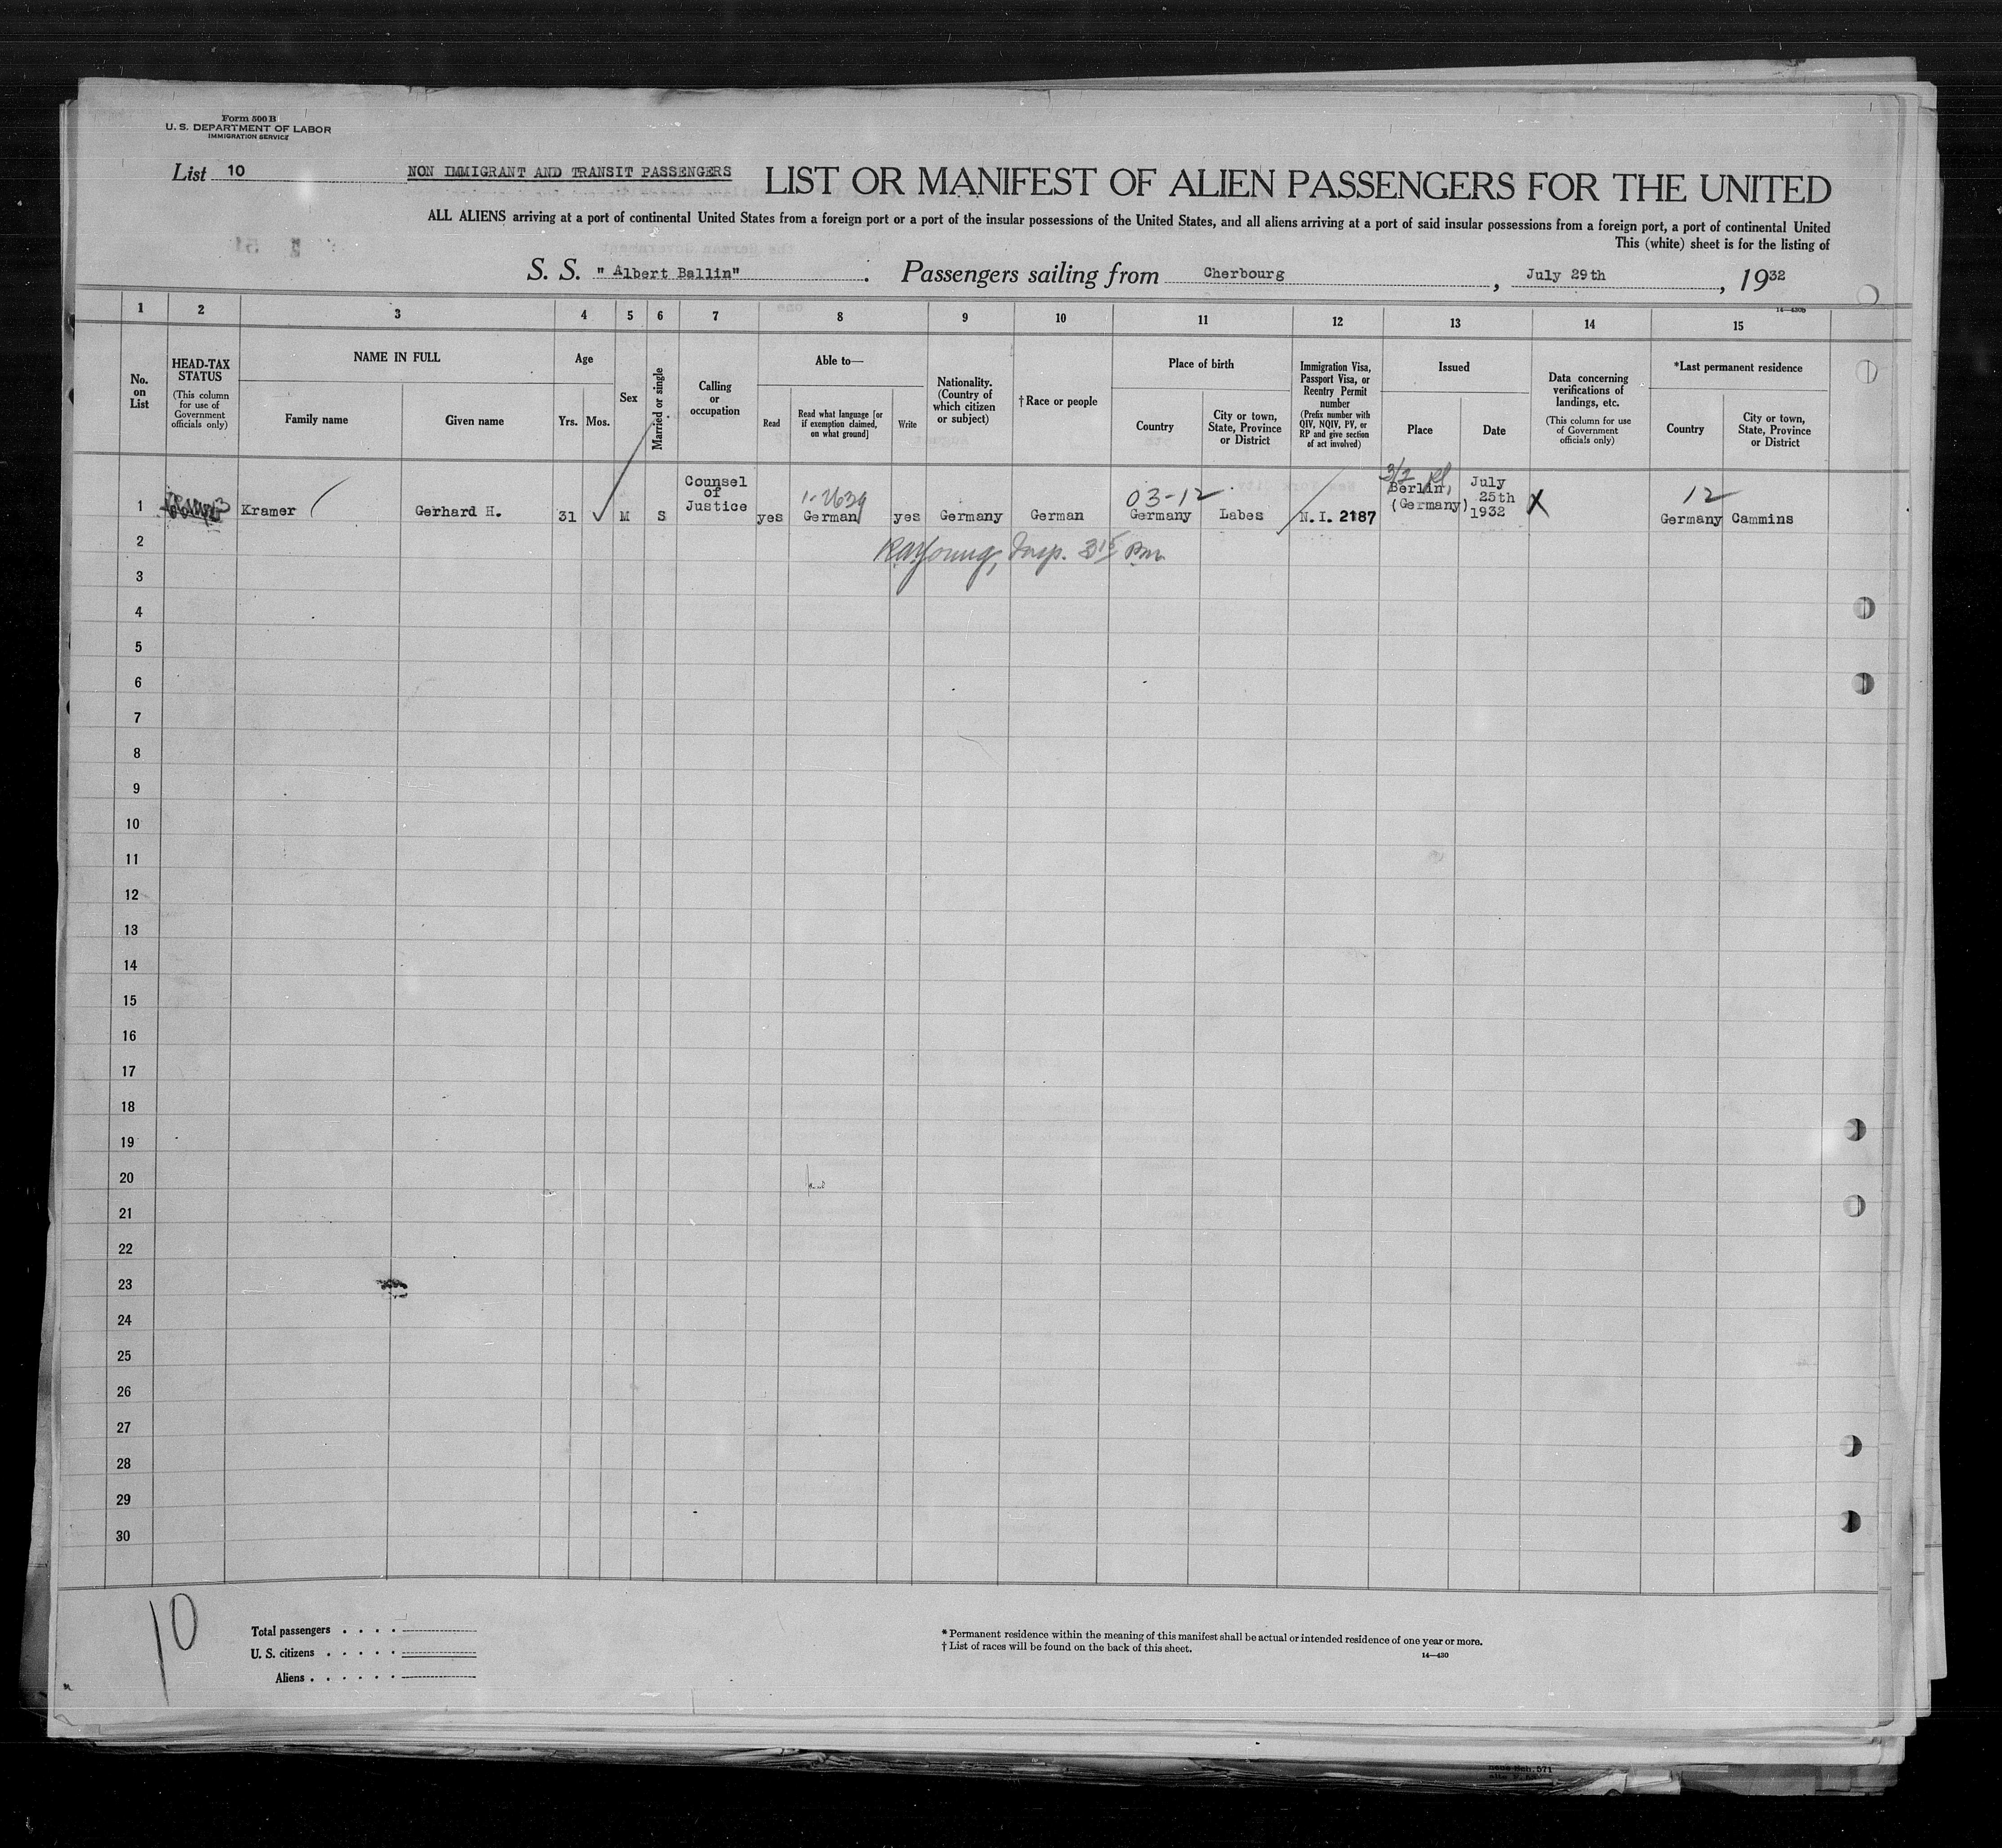 Form 500 B
U. S. DEPARTMENT OF LABOR
IMMIGRATION SERVICE
List 10
NON IMMIGRANT AND TRANSIT PASSENGERS
LIST OR MANIFEST OF ALIEN PASSENGERS FOR THE UNITED
ALL ALIENS arriving at a port of continental United States from a foreign port or a port of the insular possessions of the United States, and all aliens arriving at a port of said insular possessions from a foreign port, a port of continental United
This (white) sheet is for the listing of
S. S. " Albert Ballin" . Passengers sailing from Cherbourg , July 29th , 1932
14—430b
1 2 3 4 5 6 7 8 9 10 11 12 13 14 15
No. on List
HEAD-TAX STATUS
(This column for use of Government officials only)
NAME IN FULL
Family name
Given name
Age
Yrs. Mos.
Sex
Married or single
Calling or occupation
Able to—
Read
Read what language [or if exemption claimed, on what ground]
Write
Nationality. (Country of which citizen or subject)
† Race or people
Place of birth
Country
City or town, State, Province or District
Immigration Visa, Passport Visa, or Reentry Permit number
(Prefix number with QIV, NQIV, PV, or RP and give section of act involved)
Issued
Place
Date
Data concerning verifications of landings, etc.
(This column for use of Government officials only)
*Last permanent residence
Country
City or town, State, Province or District
03-12
12
1 Kramer Gerhard H. 31 ✓ M S Counsel of Justice yes German yes Germany German Germany Labes N.I. 2187 Berlin, (Germany) July 25th 1932 X Germany Cammins
2
Insp. 3 15 Pm
3
4
5
6
7
8
9
10
11
12
13
14
15
16
17
18
19
20
21
22
23
24
25
26
27
28
29
30
10
Total passengers . . . .
U. S. citizens . . . . .
Aliens . . . . . .
* Permanent residence within the meaning of this manifest shall be actual or intended residence of one year or more.
† List of races will be found on the back of this sheet.
14—430